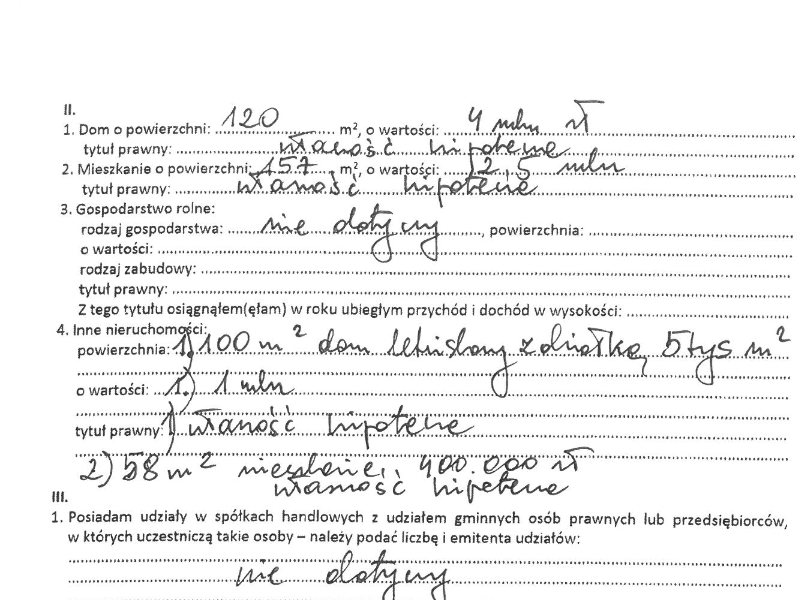 II.
1. Dom o powierzchni: 120 m², o wartości: 4 mln zł
tytuł prawny: własność hipoteczne
2. Mieszkanie o powierzchni: 157 m², o wartości: 2,5 mln
tytuł prawny: własność hipoteczne
3. Gospodarstwo rolne:
rodzaj gospodarstwa: nie dotyczy, powierzchnia:
o wartości:
rodzaj zabudowy:
tytuł prawny:
Z tego tytułu osiągnąłem(ęłam) w roku ubiegłym przychód i dochód w wysokości:
4. Inne nieruchomości:
powierzchnia: 1) 100 m² dom letniskowy z działką 5 tys m²
o wartości: 1) 1 mln
tytuł prawny: 1) własność hipoteczne
2) 58 m² mieszkanie, 400.000 zł
własność hipoteczne
III.
1. Posiadam udziały w spółkach handlowych z udziałem gminnych osób prawnych lub przedsiębiorców,
w których uczestniczą takie osoby – należy podać liczbę i emitenta udziałów:
nie dotyczy